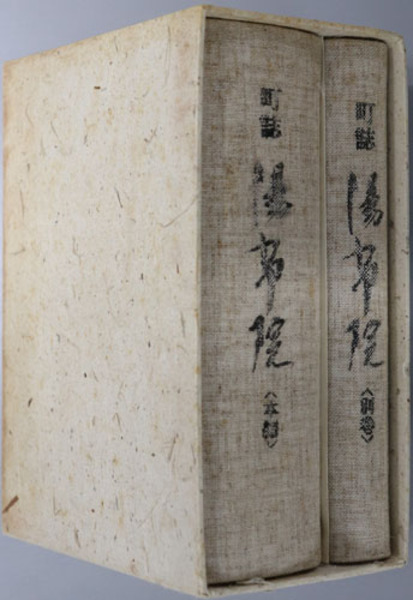 町誌
湯布院
〈本編〉
町誌
湯布院
〈別巻〉